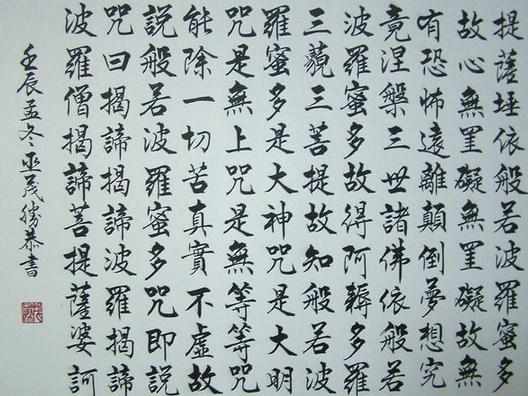 提薩埵依般若波羅蜜多
故心無罣礙無罣礙故無
有恐怖遠離顛倒夢想究
竟涅槃三世諸佛依般若
波羅蜜多故得阿耨多羅
三藐三菩提故知般若波
羅蜜多是大神咒是大明
咒是無上咒是無等等咒
能除一切苦真實不虛故
說般若波羅蜜多咒即說
咒曰揭諦揭諦波羅揭諦
波羅僧揭諦菩提薩婆訶
壬辰孟冬茂勝恭書